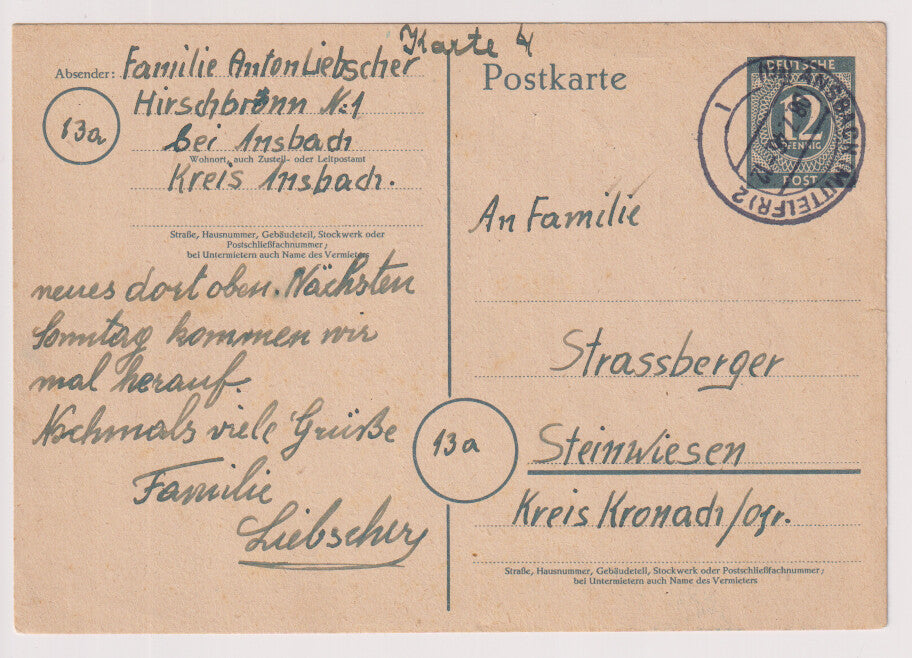 Karte 4
Absender: Familie Anton Liebscher
Hirschbronn N:1
13a
bei Ansbach
Wohnort, auch Zustell- oder Leitpostamt
Kreis Ansbach.
Straße, Hausnummer, Gebäudeteil, Stockwerk oder
Postschließfachnummer;
bei Untermietern auch Name des Vermieters
neues dort oben. Nächsten
Sonntag kommen wir
mal herauf.
Nochmals viele Grüße
Familie
Liebscher
Postkarte
DEUTSCHE
12
PFENNIG
POST
ANSBACH (MITTELFR) 2
An Familie
Strassberger
13a
Steinwiesen
Kreis Kronach/ofr.
Straße, Hausnummer, Gebäudeteil, Stockwerk oder Postschließfachnummer;
bei Untermietern auch Name des Vermieters